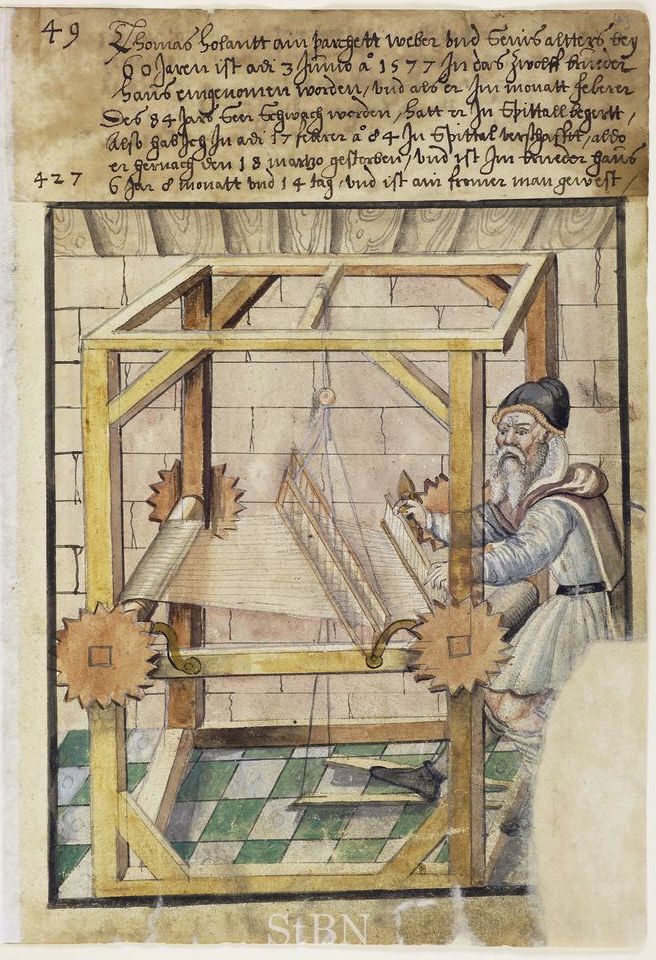 49
Thomas holantt ain parchett weber vnd seins altters bey
60 Jaren ist adi 3 Junio a° 1577 In das Zwölff brueder
haus eingenomen worden, vnd als er Im monatt feberer
Des 84 Jars seer schwach worden, hatt er In Spittall begertt,
Also hab Ich In adi 17 febrer a° 84 In Spittal verschafft, aldo
er hernach den 18 martzo gestorben, vnd ist Im brueder haus
427
6 Jar 8 monatt vnd 14 tag, vnd ist ain fromer man gewest,
StBN